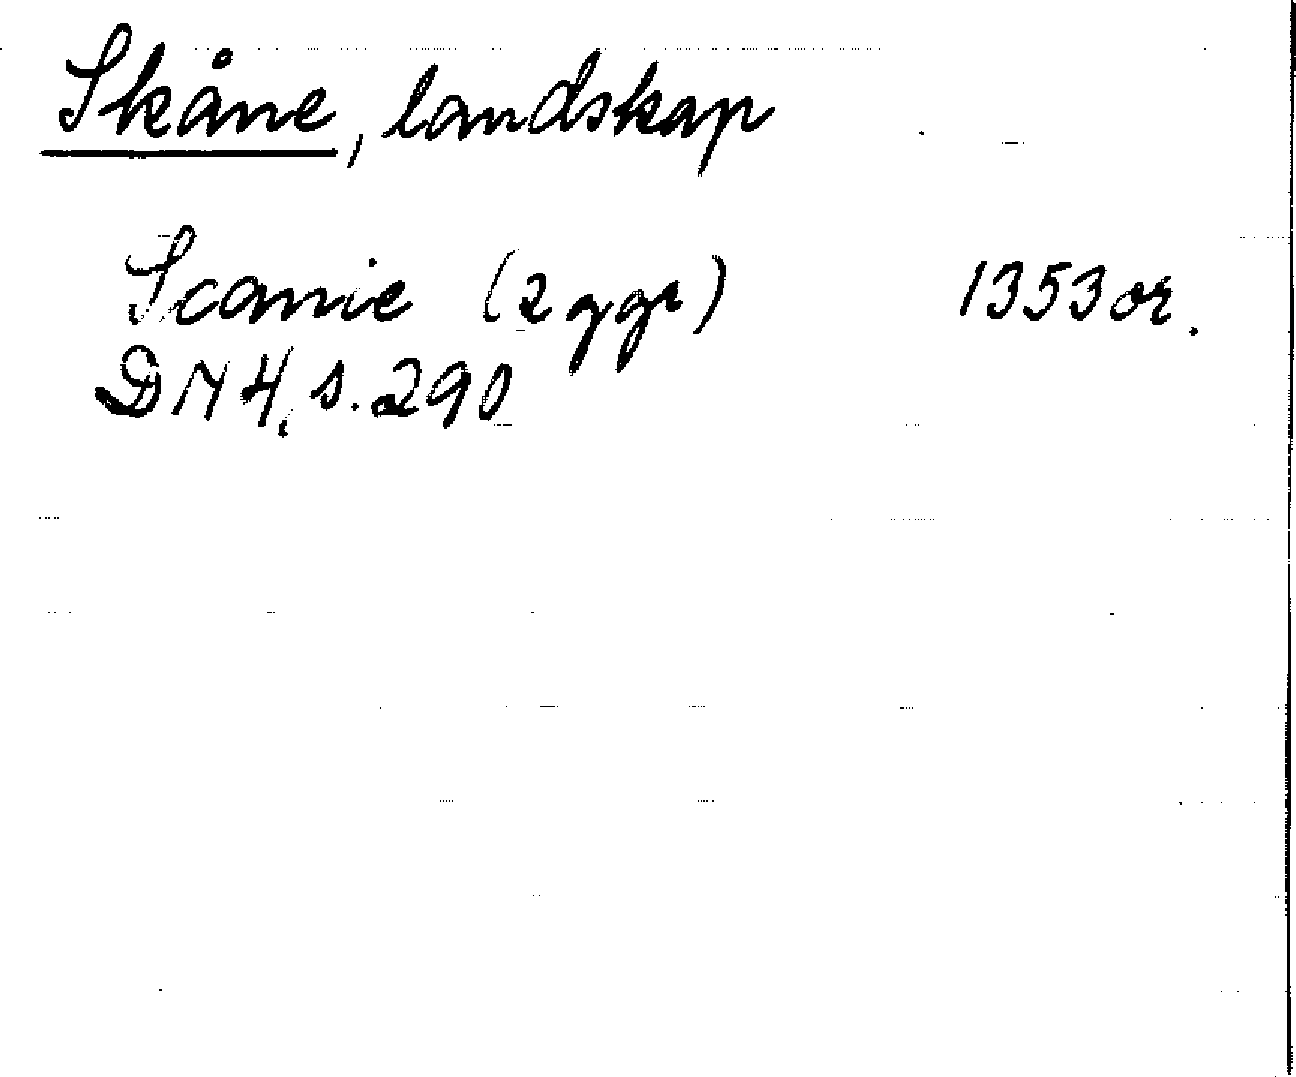 Skåne, landskap
Scanie (2 ggr) 1353 or.
DN 4, s. 290